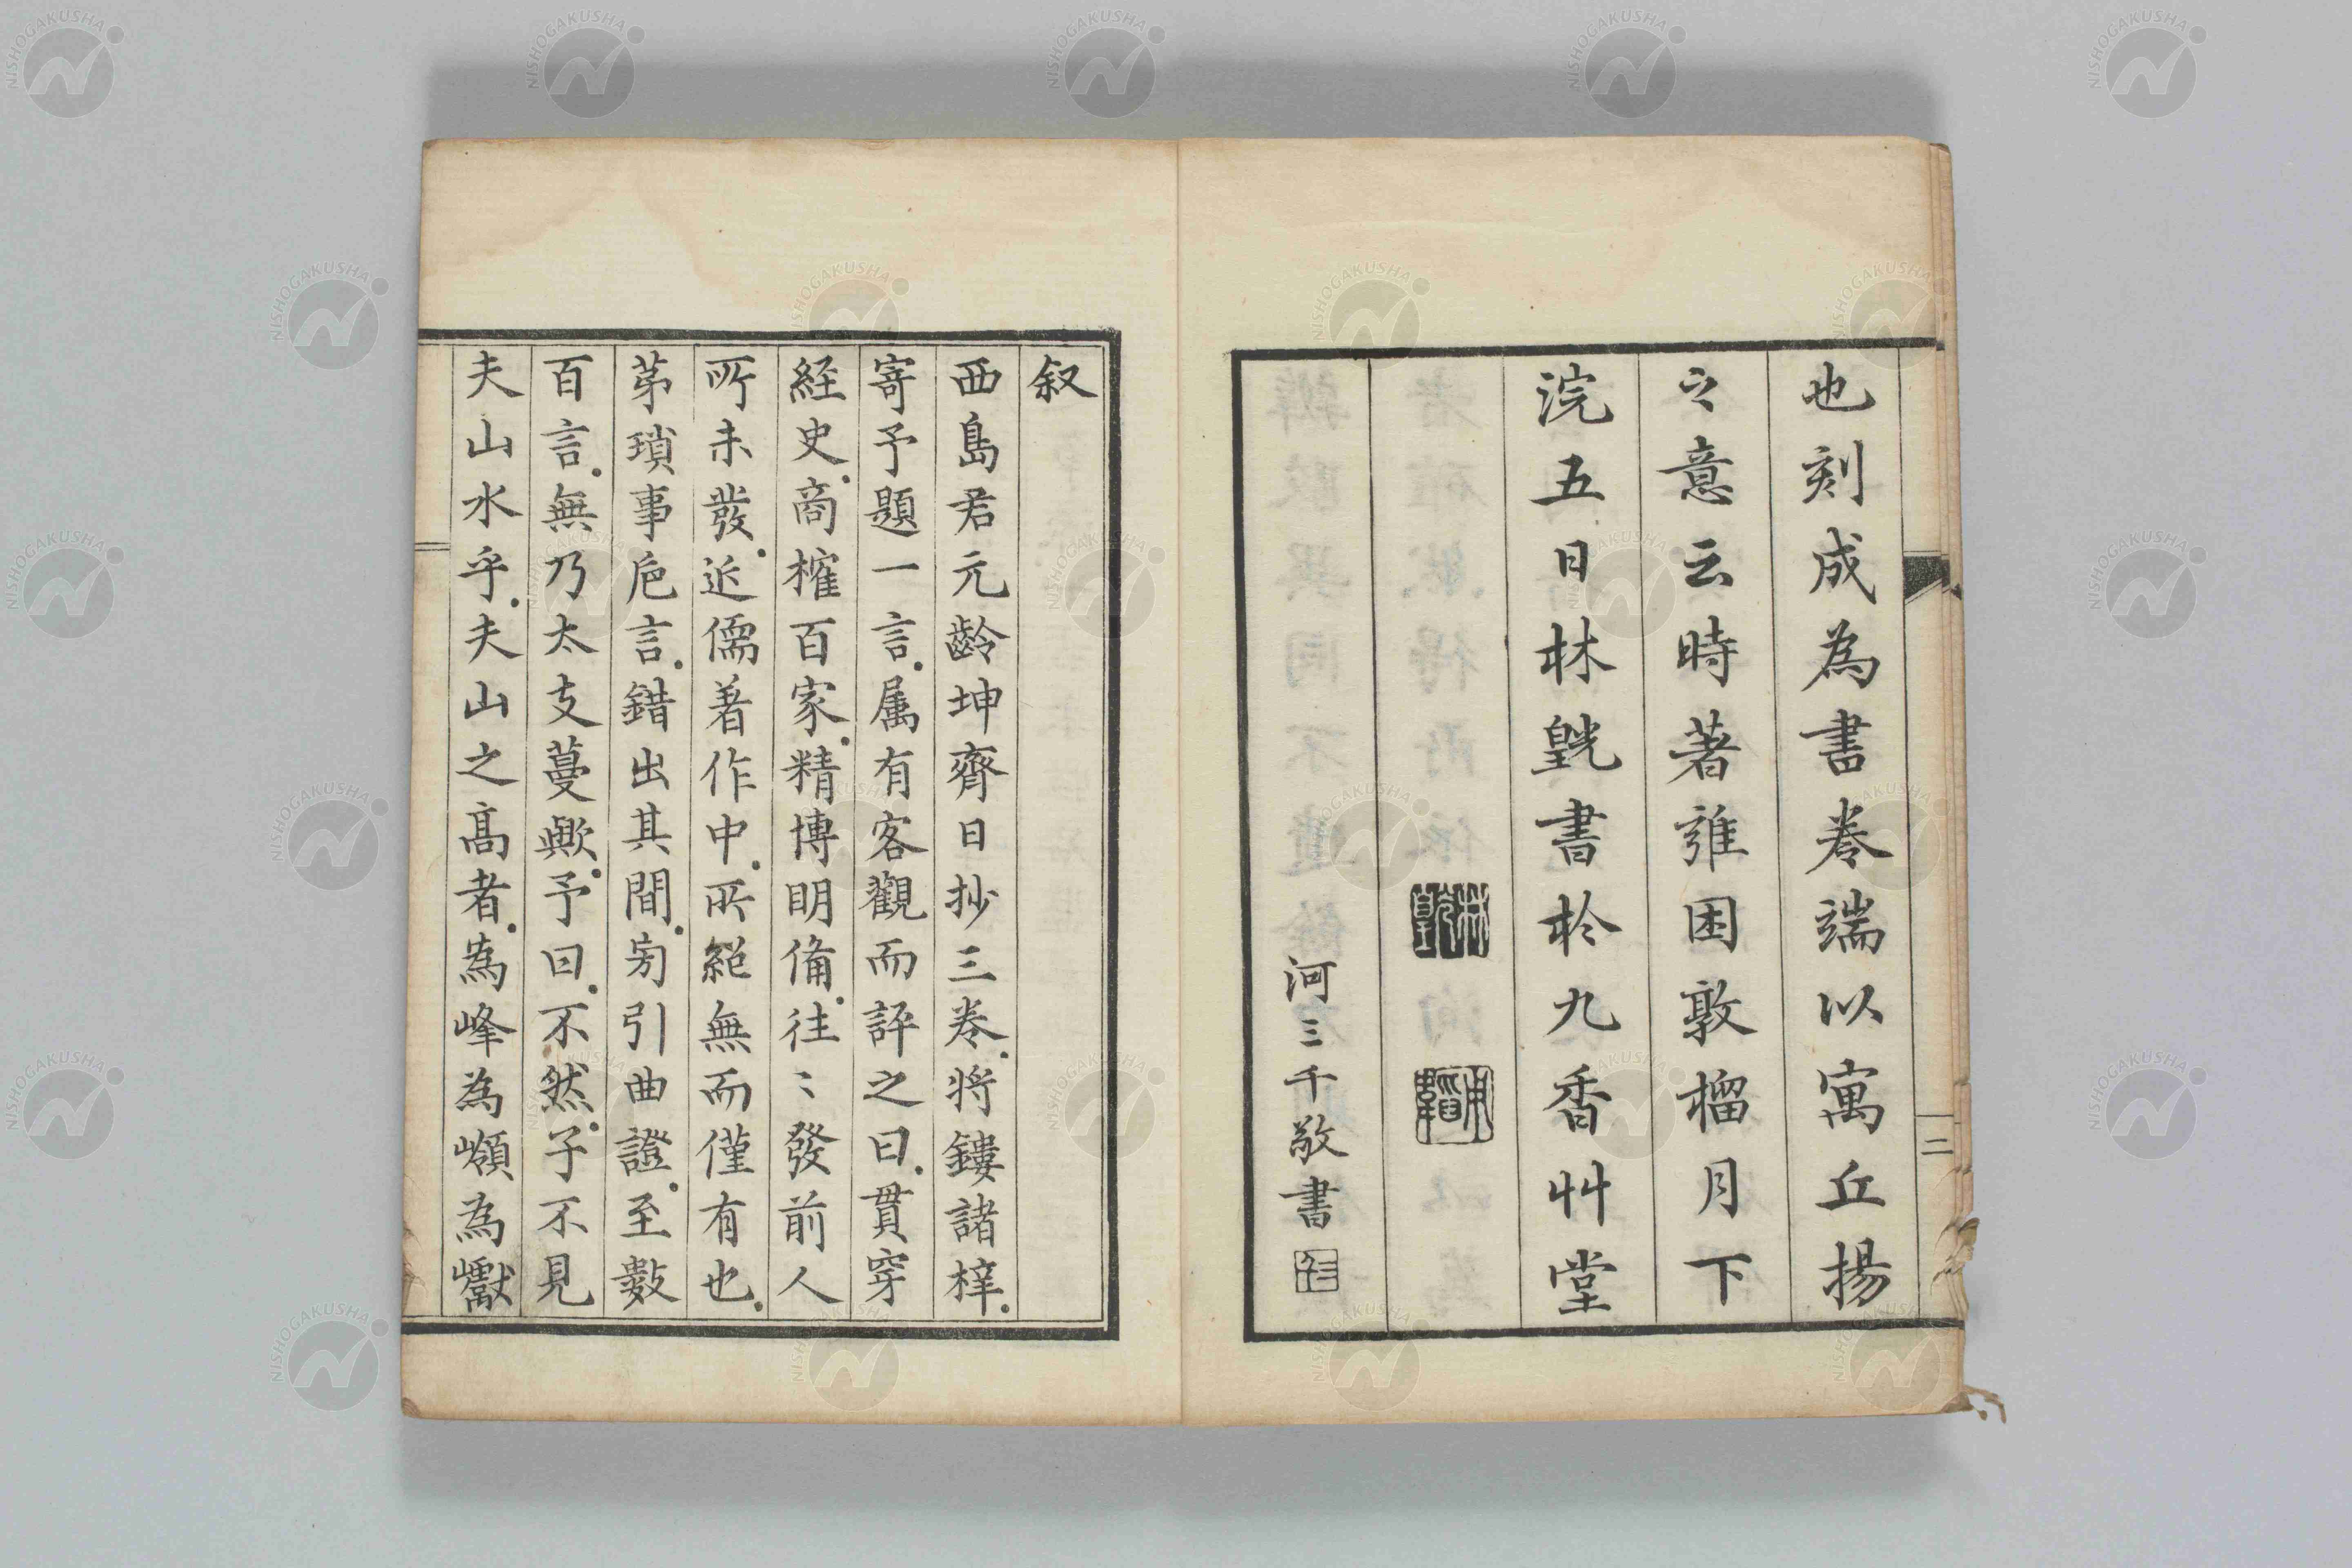 也刻成為書巻端以寓丘揚
之意云時著雍困敦榴月下
浣五日林皝書於九香艸堂
河三千敬書
二
叙
西島君元齡坤齊日抄三巻。将鏤諸梓。
寄予題一言。属有客觀而評之曰。貫穿
経史。商榷百家。精博明備。往〻發前人
所未發。近儒著作中。所絕無而僅有也。
苐瑣事巵言。錯出其間。旁引曲證。至數
百言。無乃太支蔓歟。予曰。不然。子不見
夫山水乎。夫山之高者。為峰為嶺為巘
NISHOGAKUSHA